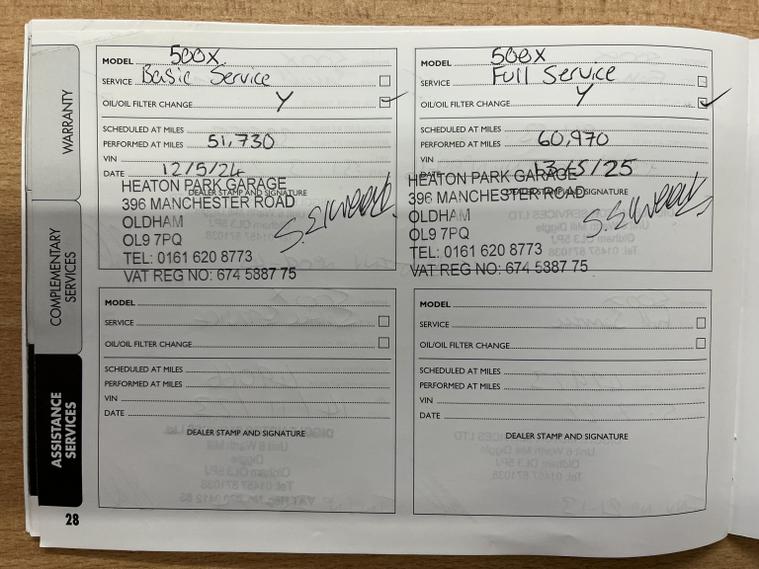 WARRANTY
COMPLEMENTARY
SERVICES
ASSISTANCE
SERVICES
MODEL 500X
SERVICE Basic Service
OIL/OIL FILTER CHANGE Y
SCHEDULED AT MILES
PERFORMED AT MILES 51,730
VIN
DATE 12/5/24
DEALER STAMP AND SIGNATURE
HEATON PARK GARAGE
396 MANCHESTER ROAD
OLDHAM
OL9 7PQ
TEL: 0161 620 8773
VAT REG NO: 674 5887 75
MODEL 500X
SERVICE Full Service
OIL/OIL FILTER CHANGE Y
SCHEDULED AT MILES
PERFORMED AT MILES 60,970
VIN
DATE 13/5/25
DEALER STAMP AND SIGNATURE
HEATON PARK GARAGE
396 MANCHESTER ROAD
OLDHAM
OL9 7PQ
TEL: 0161 620 8773
VAT REG NO: 674 5387 75
MODEL
SERVICE
OIL/OIL FILTER CHANGE
SCHEDULED AT MILES
PERFORMED AT MILES
VIN
DATE
DEALER STAMP AND SIGNATURE
MODEL
SERVICE
OIL/OIL FILTER CHANGE
SCHEDULED AT MILES
PERFORMED AT MILES
VIN
DATE
DEALER STAMP AND SIGNATURE
28